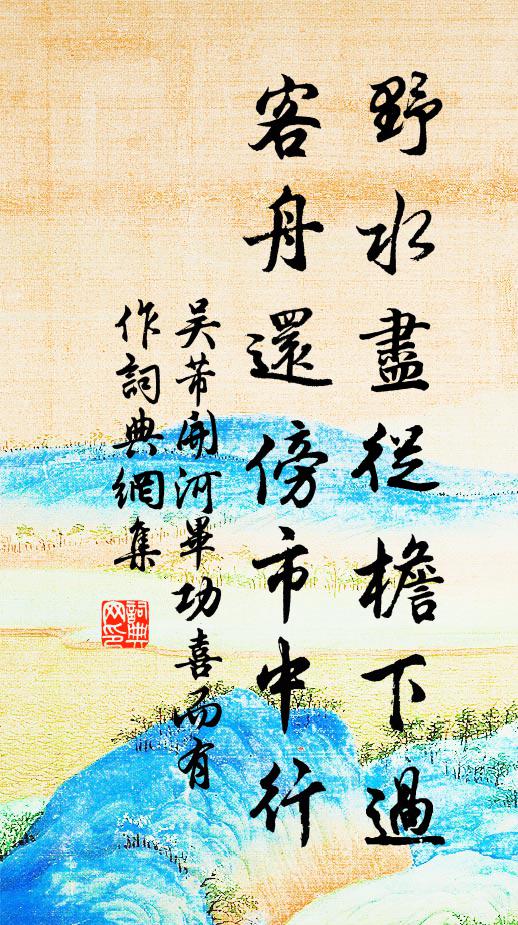 野水盡從檐下過
客舟還傍市中行
吴芾開河畢功喜而有
作詞典網集
詞典网印